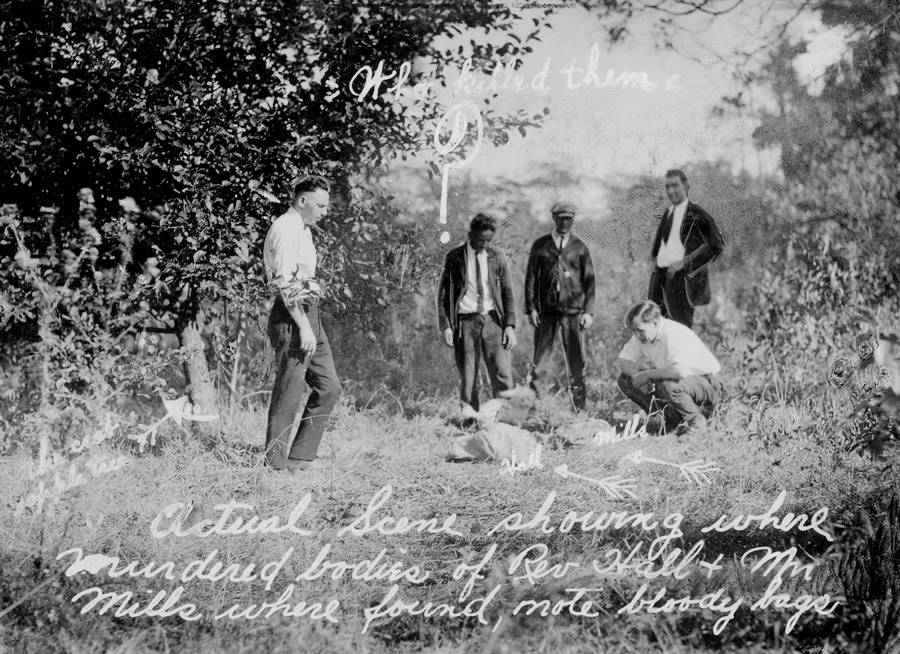 Who killed them
?
Mills
Hall
apple tree
Actual Scene showing where
murdered bodies of Rev Hall & Mrs
Mills where found, note bloody bags